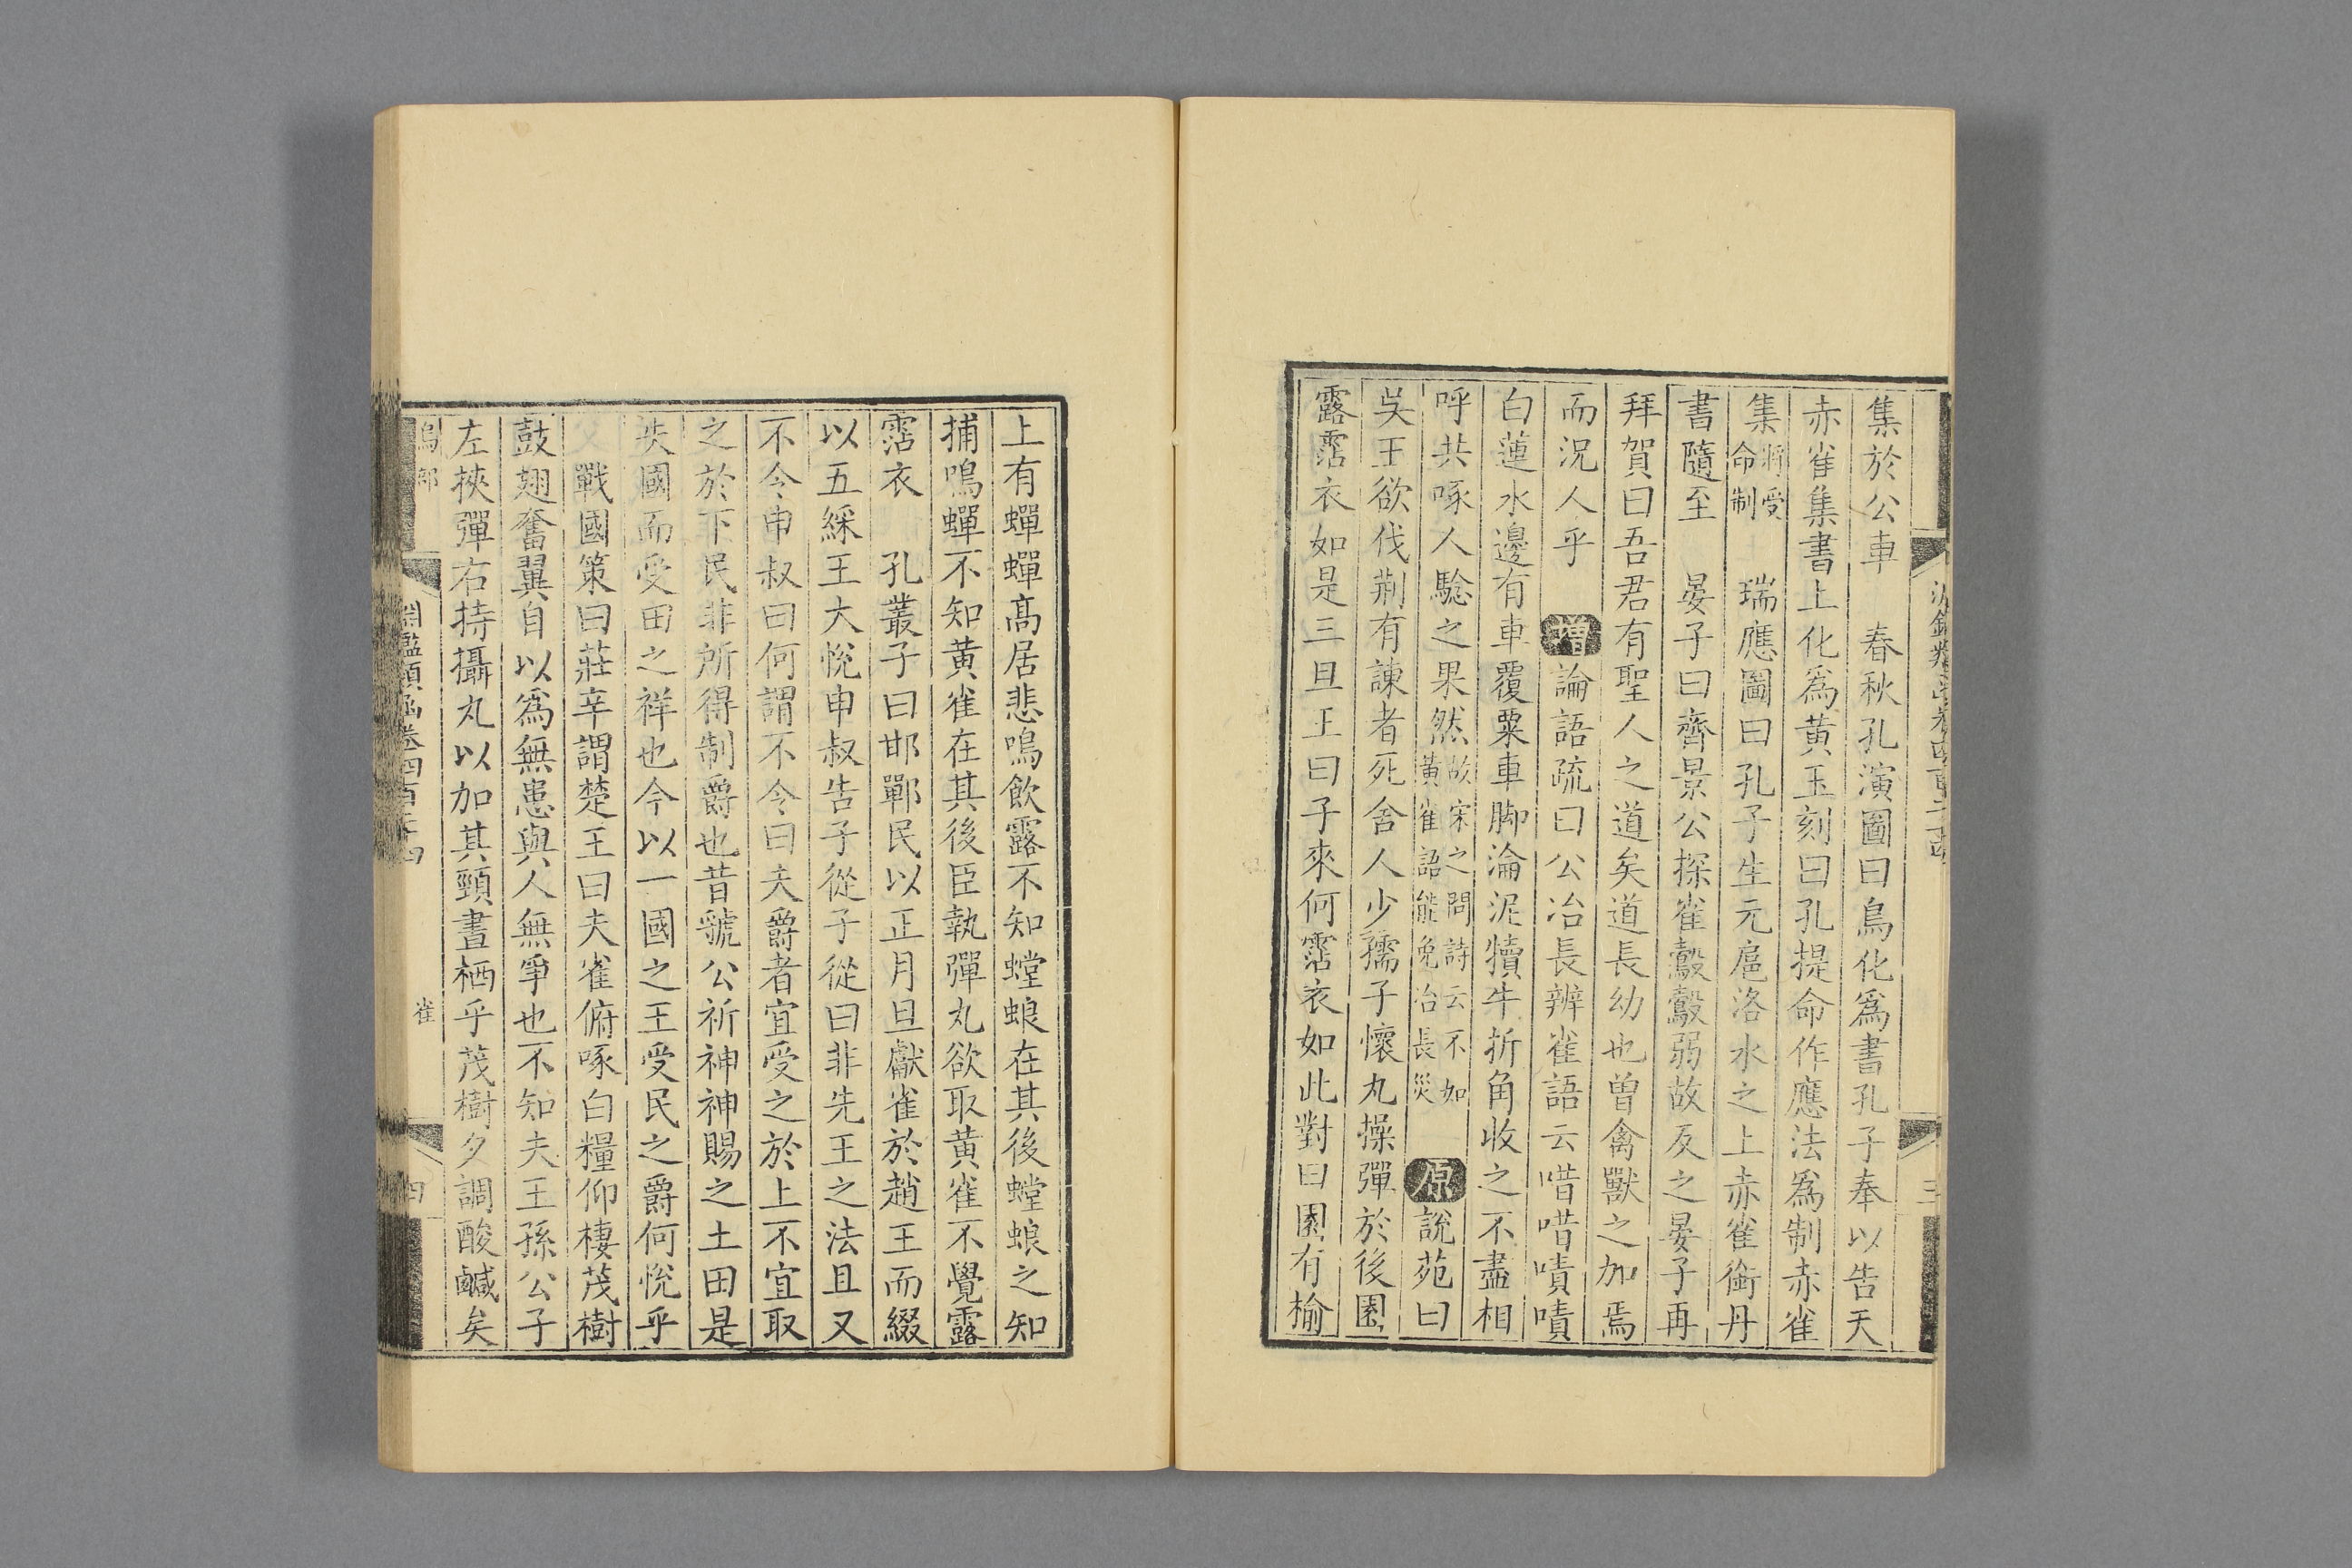 集於公車　春秋孔演圖曰鳥化爲書孔子奉以告天
赤雀集書上化爲黄玉刻曰孔提命作應法爲制赤雀
集將受命制　瑞應圖曰孔子生元扈洛水之上赤雀銜丹
書隨至　晏子曰齊景公探雀鷇鷇弱故反之晏子再
拜賀曰吾君有聖人之道矣道長幼也曾禽獸之加焉
而況人乎　增論語疏曰公冶長辨雀語云唶唶嘖嘖
白蓮水邊有車覆粟車脚淪泥犢牛折角收之不盡相
呼共啄人驗之果然故宋之問詩云不如黄雀語能免冶長災　原說苑曰
吳王欲伐荆有諫者死舍人少孺子懷丸操彈於後園
露霑衣如是三旦王曰子來何霑衣如此對曰園有榆
三
上有蟬蟬高居悲鳴飲露不知螳蜋在其後螳蜋之知
捕鳴蟬不知黄雀在其後臣執彈丸欲取黄雀不覺露
霑衣　孔叢子曰邯鄲民以正月旦獻雀於趙王而綴
以五綵王大悅申叔告子從子從曰非先王之法且又
不令申叔曰何謂不令曰夫爵者宜受之於上不宜取
之於下民非所得制爵也昔虢公祈神神賜之土田是
失國而受田之祥也今以一國之王受民之爵何悅乎
戰國策曰莊辛謂楚王曰夫雀俯啄白糧仰棲茂樹
鼓翅奮翼自以爲無患與人無爭也不知夫王孫公子
左挾彈右持攝丸以加其頸晝栖乎茂樹夕調酸鹹矣
鳥部
淵鑑類函卷四百二十四
雀
四